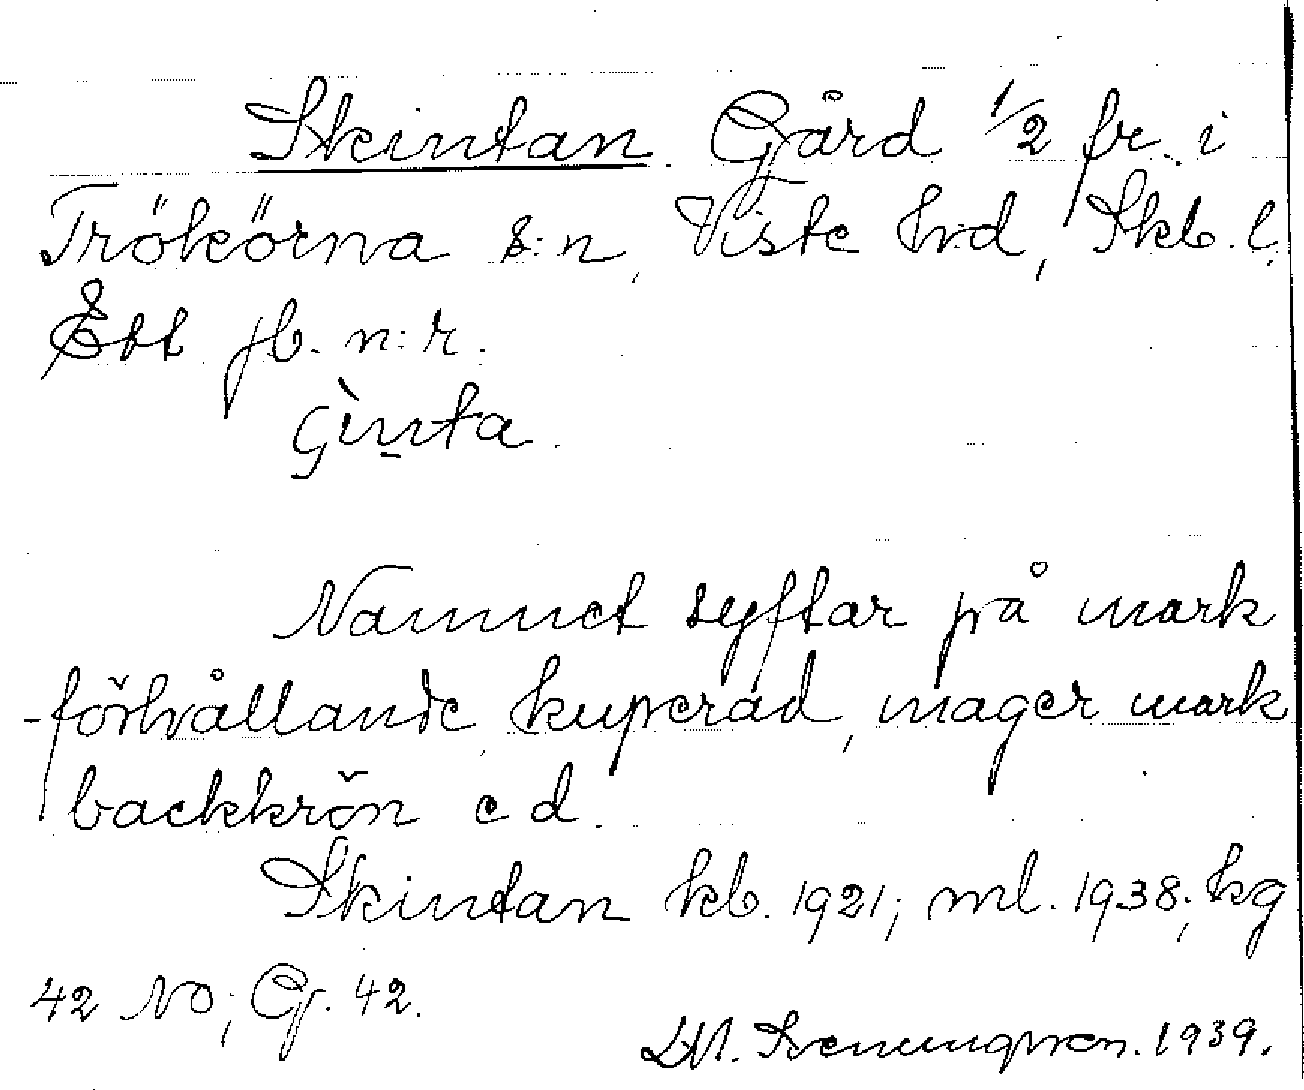 Skintan. Gård 1/2 fr. i
Trökörna s:n, Viste hrd, Skb. l.
Ett jb. n:r.
Namnet syftar på mark
-förhållande, kuperad, mager mark
backkrön e d.
Skintan kb. 1921; ml. 1938; kg
42 NO; Gj. 42.
1939.